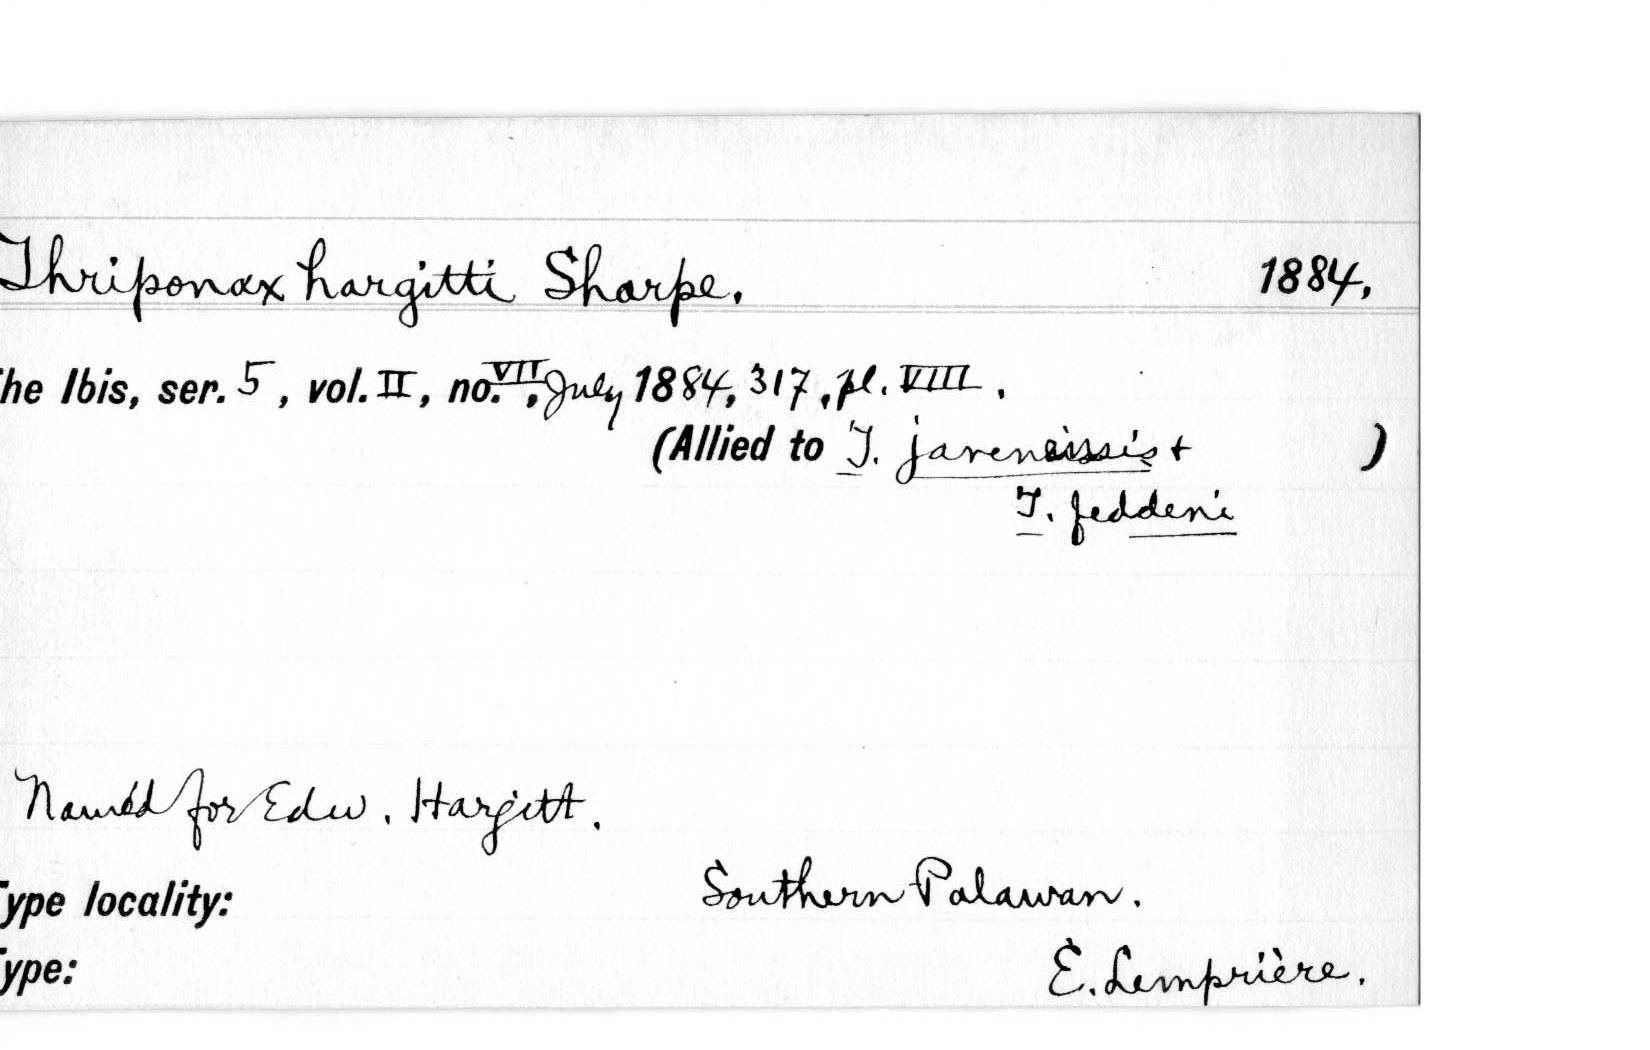 Thriponax hargitti Sharpe. 1884.
he Ibis, ser. 5, vol. II, no. VII, July 1884, 317, pl. VIII.
(Allied to T. javensissis + )
T. feddeni
Named for Edw. Hargitt.
Type locality: Southern Palawan.
ype: E. Lemprière.